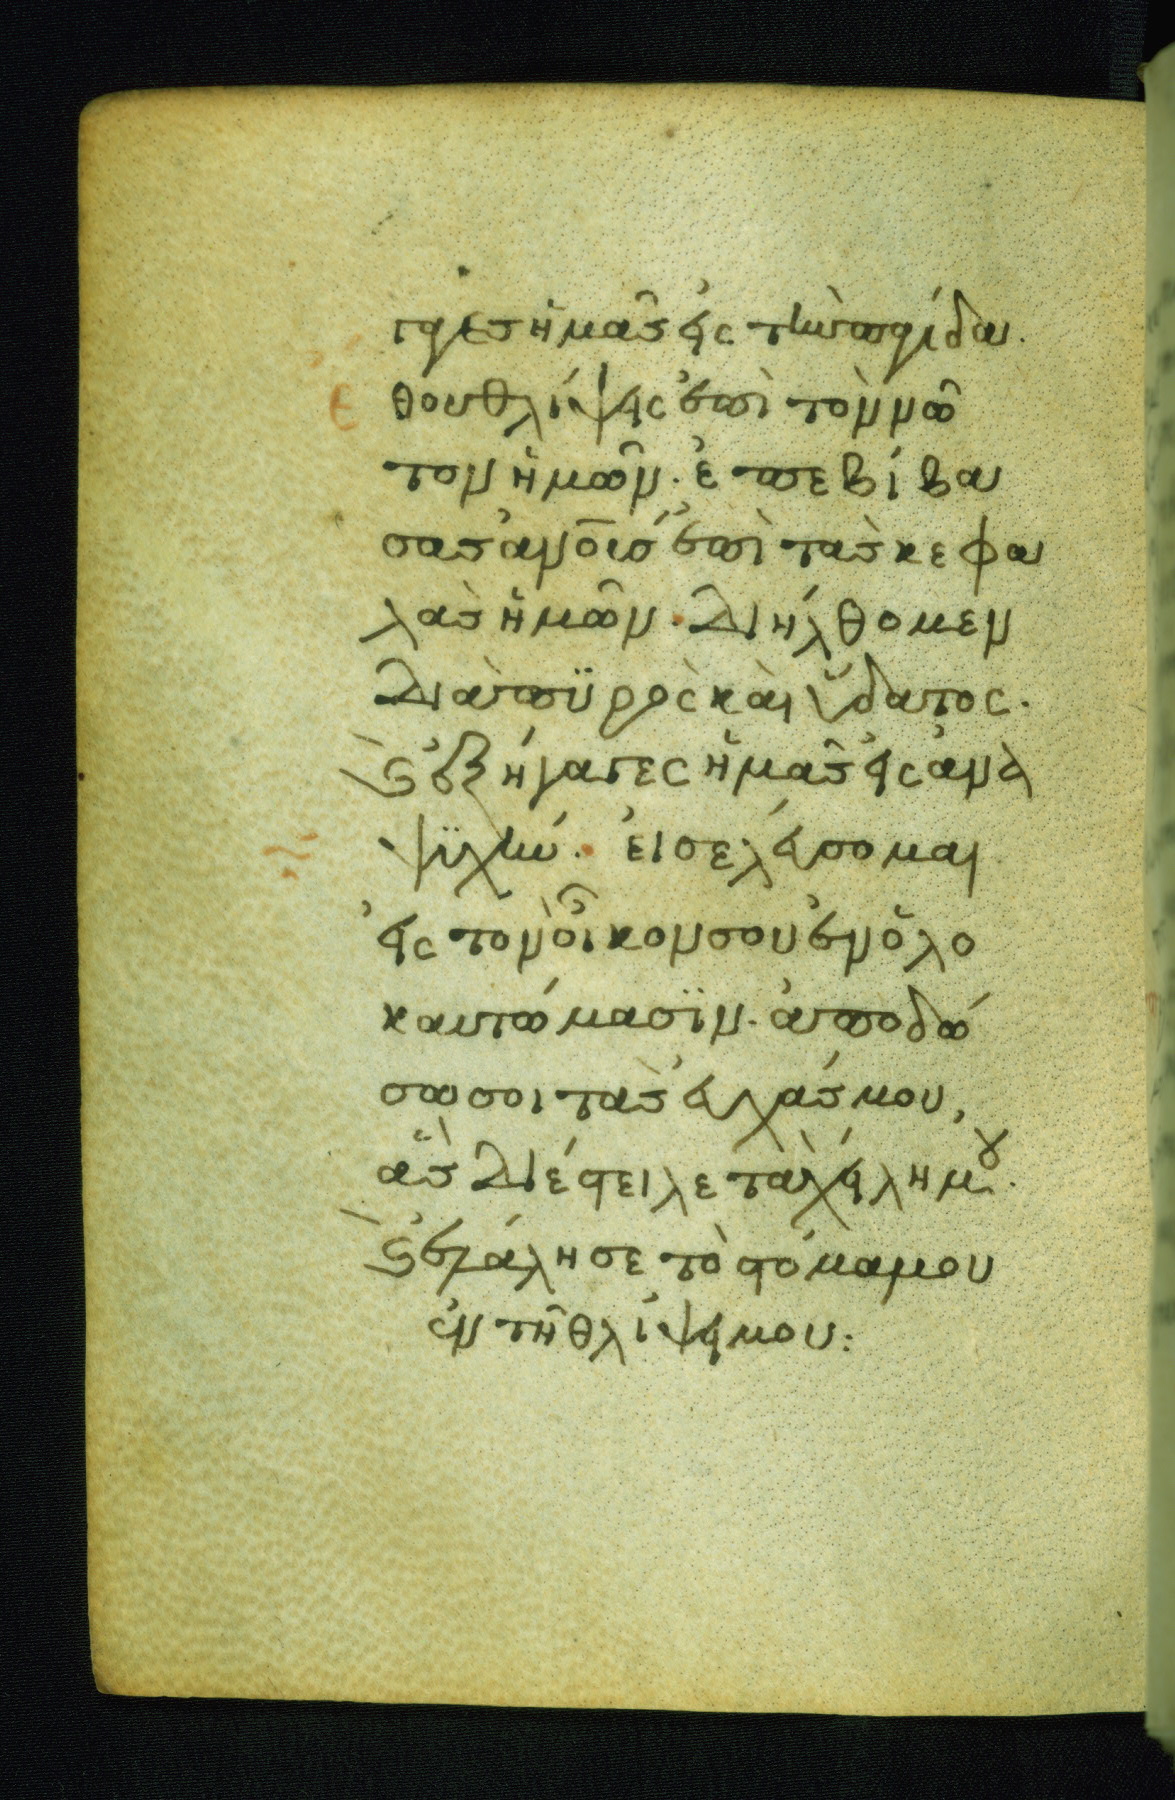 γαγες ἡμᾶς εἰς τὴν παγίδα.
ἔθου θλίψεις ἐπὶ τὸν νῶ
τον ἡμῶν· ἐπεβίβα
σας ἀν̅ο̅ι̅ς ἐπὶ τὰς κεφα
λὰς ἡμῶν· διήλθομεν
διὰ πϋρὸς καὶ ὕδατος·
καὶ ἐξήγαγες ἡμᾶς εἰς ἀνα
ψϋχήν· εἰσελεύσομαι
εἰς τὸν οἶκον σου ἐν ὁλο
καυτώμασϊν· ἀποδώ
σω σοι τὰς εὐχάς μου,
ἃς διέστειλε τὰ χείλη μου·
καὶ ἐλάλησε τὸ στόμα μου
ἐν τῇ θλίψει μου: